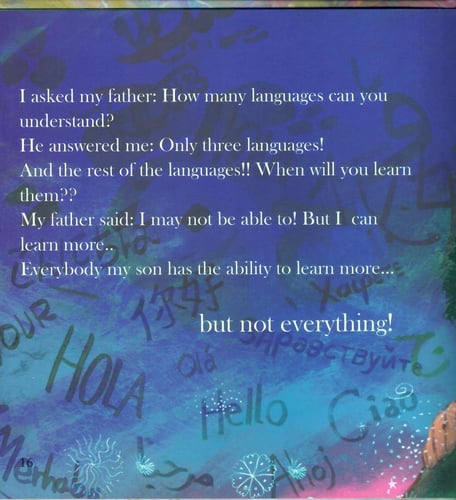 I asked my father: How many languages can you
understand?
He answered me: Only three languages!
And the rest of the languages!! When will you learn
them??
My father said: I may not be able to! But I can
learn more..
Everybody my son has the ability to learn more...
but not everything!
你好
OUR
здравствуйте
Olá
HOLA
Hello
Ciao
مرحبا
Ahoj
Merhaba
16